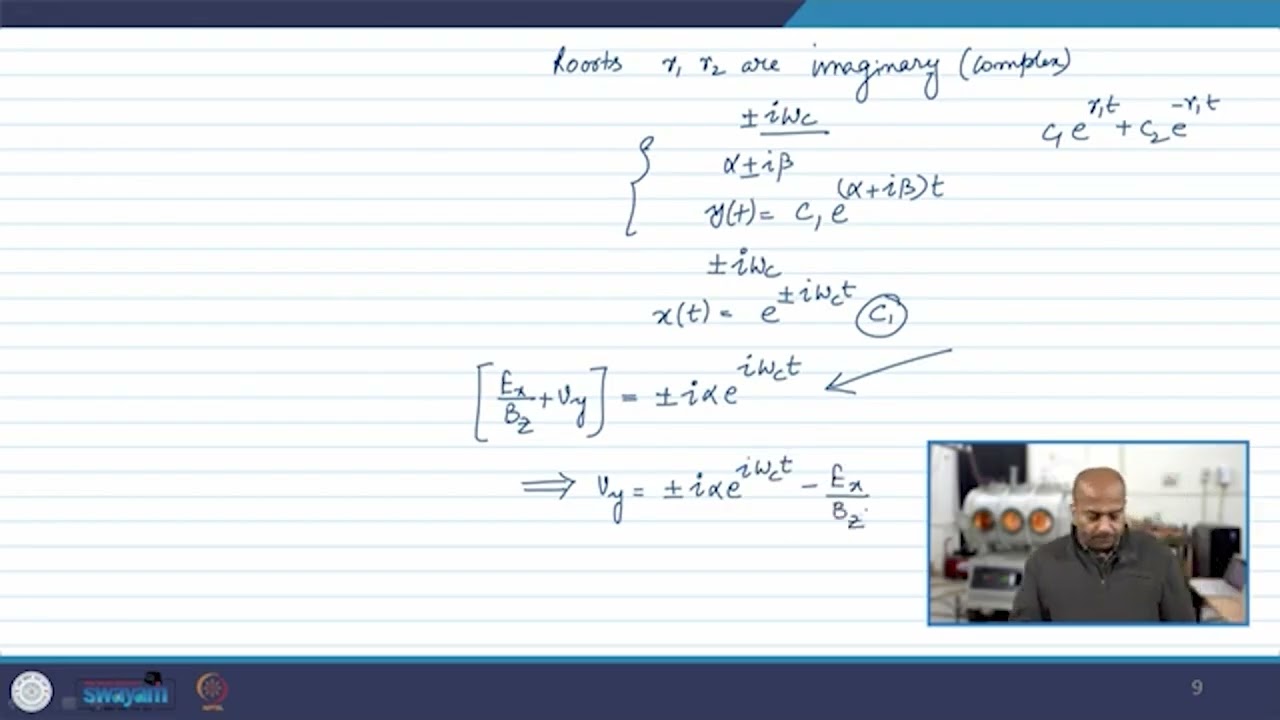 Rooots r₁ r₂ are imaginary (complex)
± iω_c
c₁ e^{r₁t} + c₂ e^{-r₁t}
α ± iβ
y(t) = c₁ e^{(α+iβ)t}
± iω_c
x(t) = e^{± iω_c t} c₁
[E_x/B_z + v_y] = ± iα e^{iω_c t}
⟹ v_y = ± iα e^{iω_c t} − E_x/B_z
swayam
9